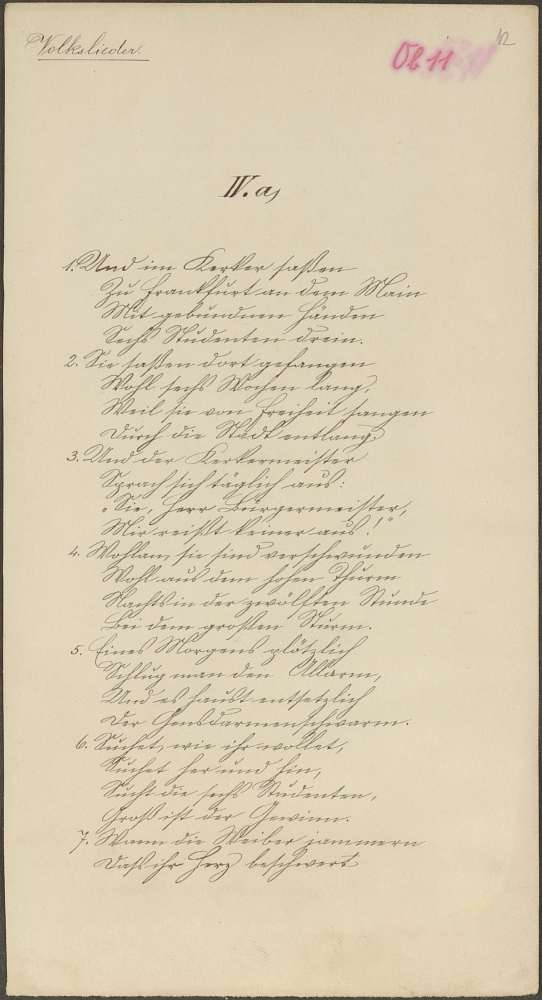 Volkslieder.
Ob 11
12
IV. a,
1. Und im Kerker saßen
Zu Frankfurt an dem Main
Mit gebundnen Händen
Sechs Studenten drein.
2. Sie saßen dort gefangen
Wohl sechs Wochen lang,
Weil sie von Freiheit sangen
Durch die Stadt entlang.
3. Und der Kerkermeister
Sprach sich täglich aus:
"Sie, Herr Bürgermeister,
Mir reißt keiner aus!"
4. Wohlan, sie sind verschwunden
Wohl aus dem hohen Thurm
Nachts in der zwölften Stunde
Bei dem großen Sturm.
5. Eines Morgens plötzlich
Schlug man den Allarm,
Und es haust entsetzlich
Der Gensdarmenschwarm.
6. Suchet, wie ihr wollet,
Suchet her und hin,
Sucht die sechs Studenten,
Groß ist der Gewinn.
7. Wann die Weiber jammern
Daß ihr Herz beschwert